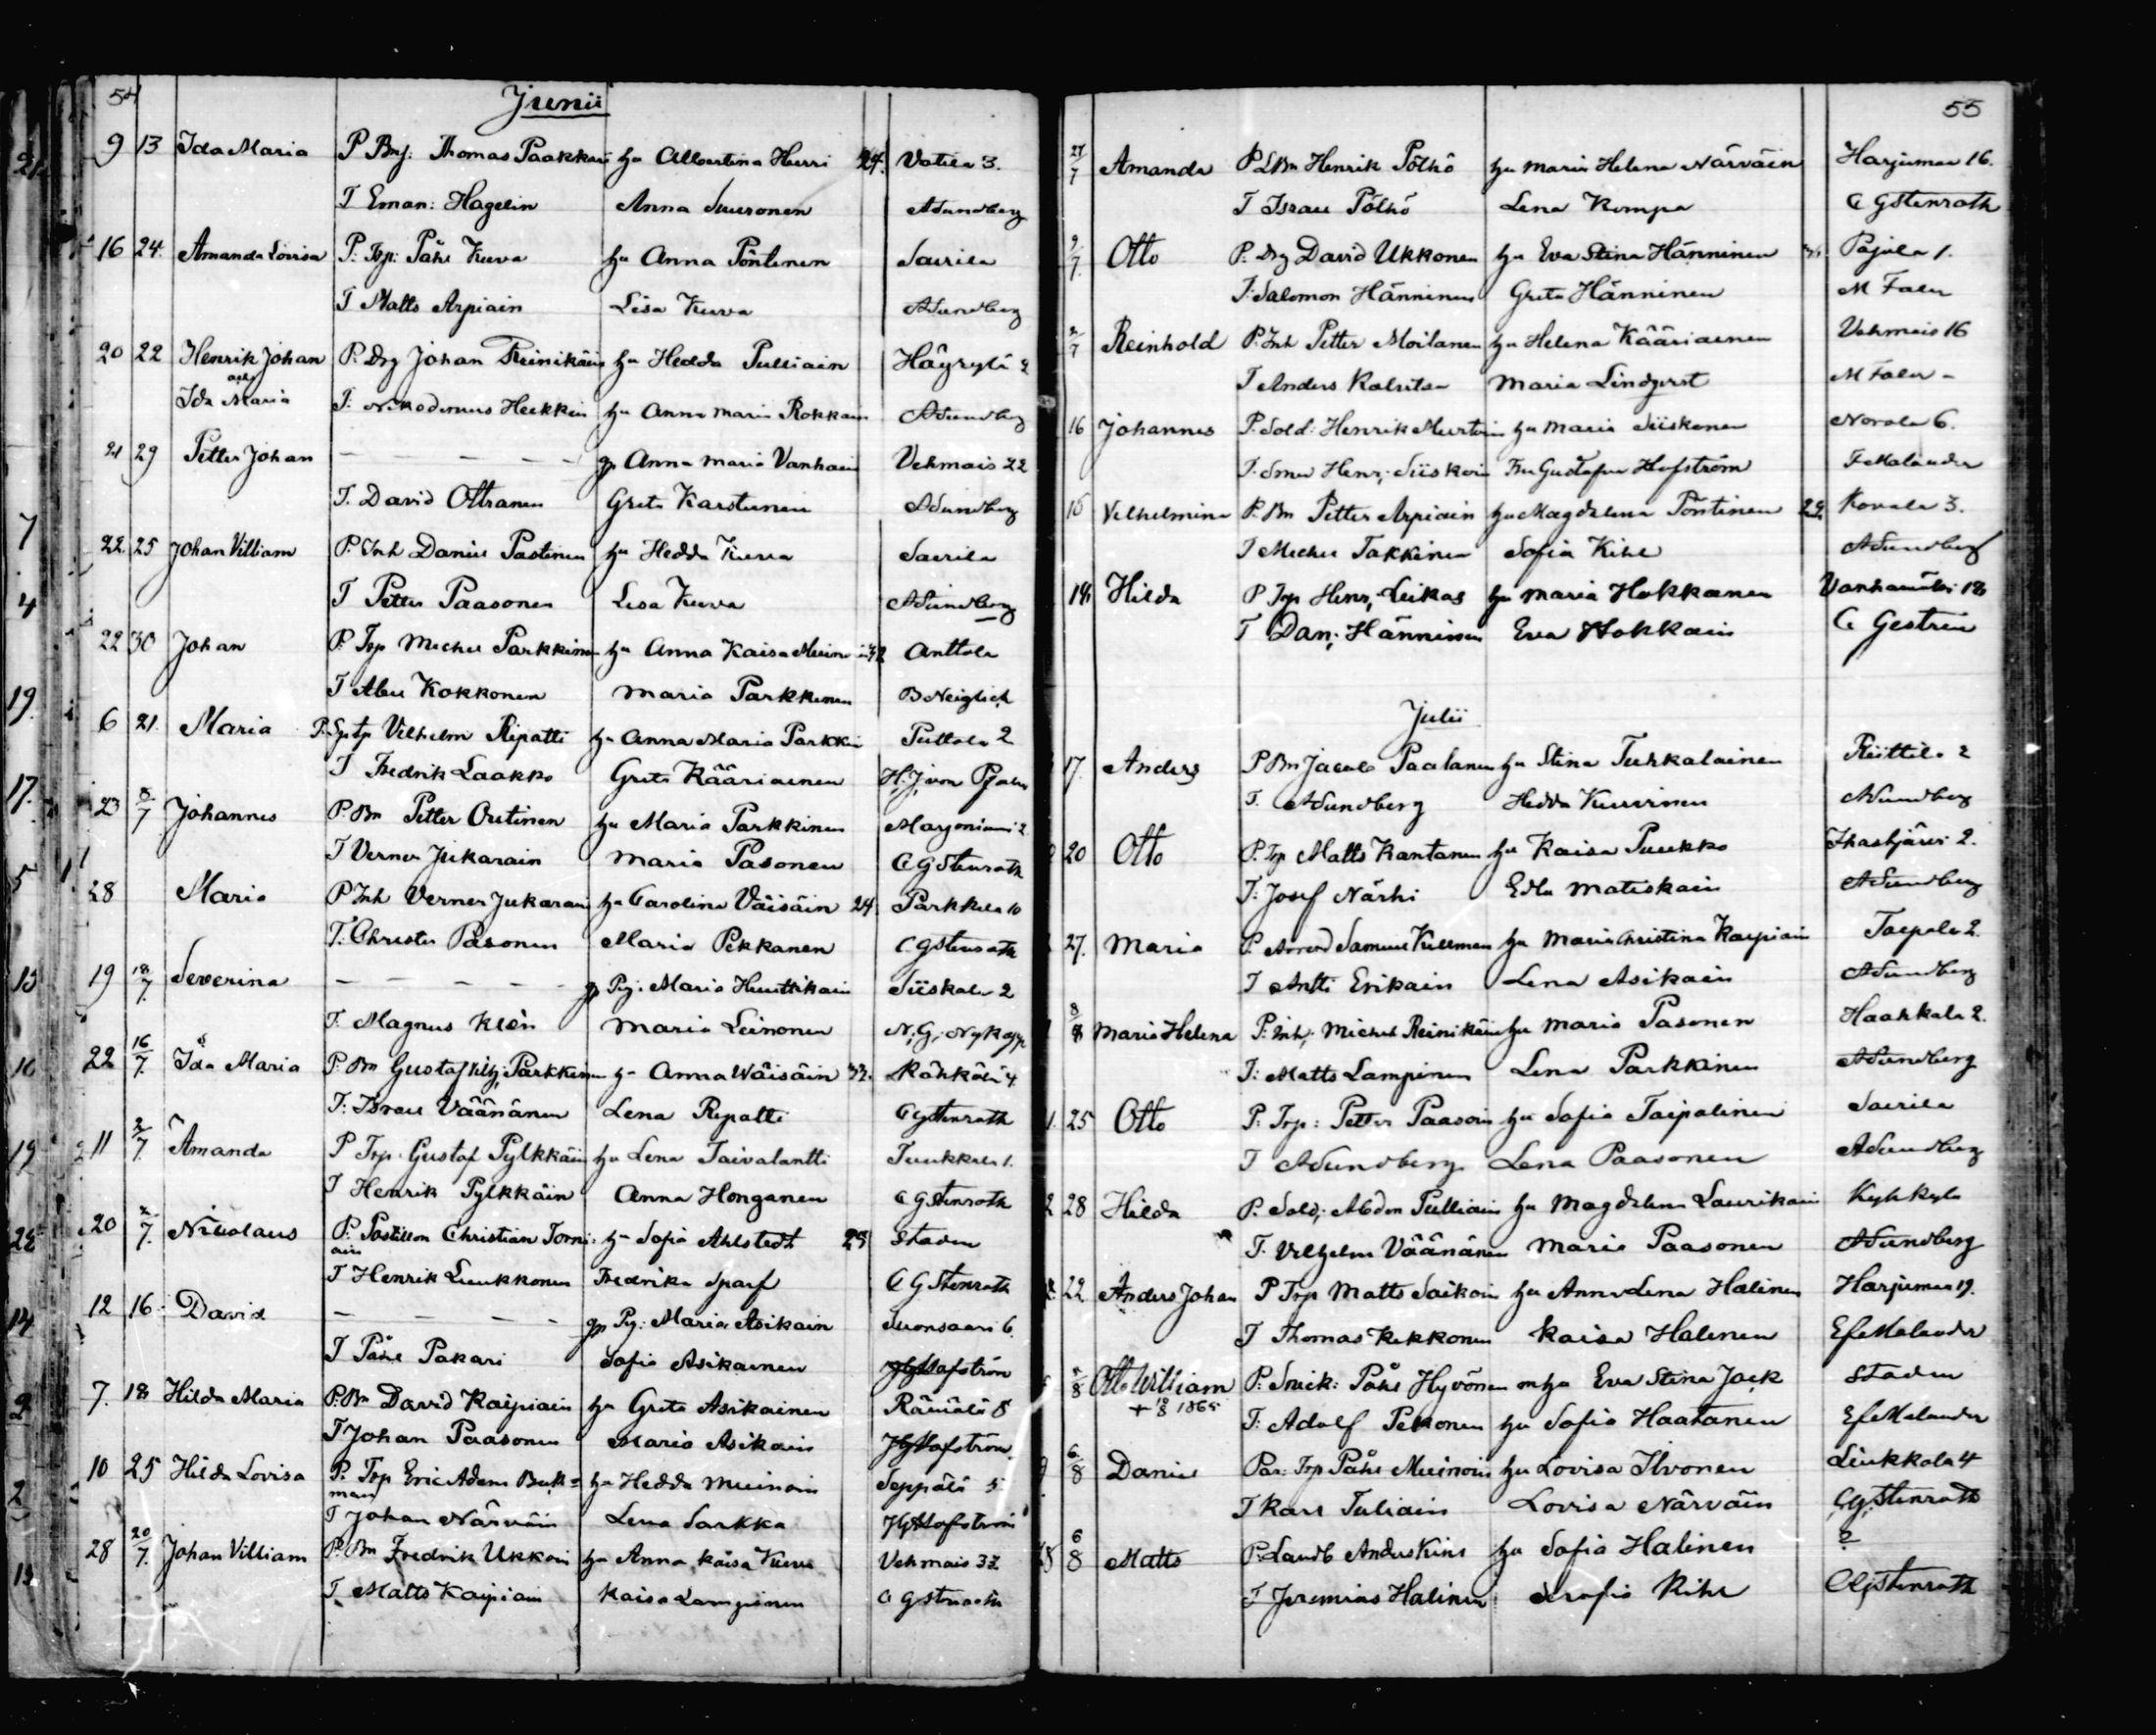 54
Junii
9 13 Ida Maria P Bmf. Thomas Paakkari hu Albertina Hurri 24. Vatila 3.
T Eman: Hagelin Anna Suuronen ASundberg
16 24. Amanda Lovisa P. Trp. Påhl Kurva hu Anna Pöntinen Sairila
T Matts Arpiain Lisa Kurva ASundberg
20 22 Henrik Johan P. Drg Johan Reinikäin hu Hedda Pulliain Häyrylä 2
och
Ida Maria T. Nikodemus Heikkin hu Anna Maria Rokkain ASundberg
21 29 Petter Johan — — — — gp Anna Maria Vanhain Vehmais 22
T. David Ollranen Greta Karstunen ASundberg
22. 25 Johan Villiam P. Inh Daniel Pastinen hu Hedda Kurva Sairila
T Petter Paasonen Lisa Kurva ASundberg
22 30 Johan P. Trp Michel Parkkinen hu Anna Kaisa Anttola
T Abel Kokkonen Maria Parkkinen B Neiglick
6 21. Maria P. Vilhelm Ripatti hu Anna Maria Parkkin Puttola 2
T Fredrik Laakko Greta Kääriainen H. J. von
23 8/7 Johannes P. Bn Petter Outinen hu Maria Parkkinen Marjoniemi 2
T Verner Jukarain Maria Pasonen C G Stenroth
28 Maria P Inh Verner Jukarain hu Carolina Väisäin 24. Parkkila 10
T. Christer Pasonen Maria Pekkanen C G Stenroth
19 18/7. Severina — — — — gp Pig: Maria Huuttikain Siiskola 2
T. Magnus Klén Maria Leinonen N. G. Nykopp
22 16/7. Ida Maria P. Bn Gustaf Parkkinen hu Anna Wäisäin 32. Rähkälä 4
T. Israel Väänänen Lena Ripatti C G Stenroth
11 2/7. Amanda P Trp. Gustaf Pylkkäin hu Lena Taivalantti Tuukkala 1.
T Henrik Pylkkäin Anna Honganen C G Stenroth
20 2/7. Nicolaus P. Postillon Christian Torni- hu Sofia Ahlstedt 25 Staden
ain
T Henrik Luukkonen Fredrika Sparf C G Stenroth
12 16. David — — — — gp Pig: Maria Asikain Suonsaari 6.
T Påhl Pakari Sofia Asikainen Hofström
7. 18 Hilda Maria P. Bn David Kaipiain hu Greta Asikainen Rämälä 8
T Johan Paasonen Maria Asikain Hofström
10 25 Hilda Lovisa P. Trp Eric Adam Buk= hu Hedda Muinoin Seppälä 5
man
T Johan Närväin Lena Sarkka Hofström
28 20/7. Johan Villiam P. Bn Fredrik Ukkoin hu Anna Kaisa Kurva Vehmais 32
T. Matts Kaipiain Kaisa Lampinen C G Stenroth
55
7 Amanda P LBn Henrik Pöllö hu Maria Helena Närväin Harjumaa 16.
T Israel Pöllö Lena Kompa C G Stenroth
9/7. Otto P. Drg David Ukkonen hu Eva Stina Hänninen Pajula 1.
T. Salomon Hänninen Greta Hänninen M Faler
2/7 Reinhold P. Inh Petter Moilanen hu Helena Kääriainen Vehmais 16
T Anders Maria Lindqvist M Faler
16 Johannes P. Sold: Henrik hu Maria Siiskonen Norola 6.
T. Henr, Siiskoin Fru Gustafva Hofström F Malander
15 Velhelmina P. Bn Petter Arpiain hu Magdalena Pöntinen 22. Kovala 3.
T Michel Takkinen Sofia Kihl ASundberg
18 Hilda P Trp Henr, Leikas hu Maria Hokkanen Vanhamäki 18
T Dan; Hänninen Eva Hokkain C Gestrin
Julii
17. Anders P Bn Jacob Paalanen hu Stina Tuhkalainen Riittilä 2
T. ASundberg Hedda Kurvinen ASundberg
20 Otto P. Trp Matts Kantanen hu Kaisa Puukko Ihastjärvi 2.
T. Josef Närhi Edla Matiskain ASundberg
27. Maria P. Samuel Kullman hu Maria Christina Karpiain Taipale 2.
T Antti Erikain Lena Asikain ASundberg
8/8 Maria Helena P. Inh. Michel Reinikäin hu Maria Pasonen Haahkala 2.
T. Matts Lampinen Lena Parkkinen ASundberg
25 Otto P. Trp: Petter Paasoin hu Sofia Taipalinen Sairila
T ASundberg Lena Paasonen ASundberg
28 Hilda P. Sold; Abdon Pulliain hu Magdalena Laurikain Kyhkylä
T. Vilhelm Väänänen Maria Paasonen ASundberg
22 Anders Johan P Trp Matts Saikoin hu Anna Lena Halinen Harjumaa 19.
T Thomas Kekkonen Kaisa Halinen Malander
5/8 Otto William P. Snick: Påhl Hyvönen m hu Eva Stina Jack Staden
+ 18/8 1865 T. Adolf Pekkonen hu Sofia Haatanen Malander
6/8 Daniel Par: Trp Påhl Muinoin hu Lovisa Ilvonen Liukkola 4
T Karl Tuliain Lovisa Närväin C. G. Stenroth
6/8 Matts P. Landb Anders Kinl hu Sofia Halinen ?
T Jeremias Halinen Serafia Kihl C G Stenroth